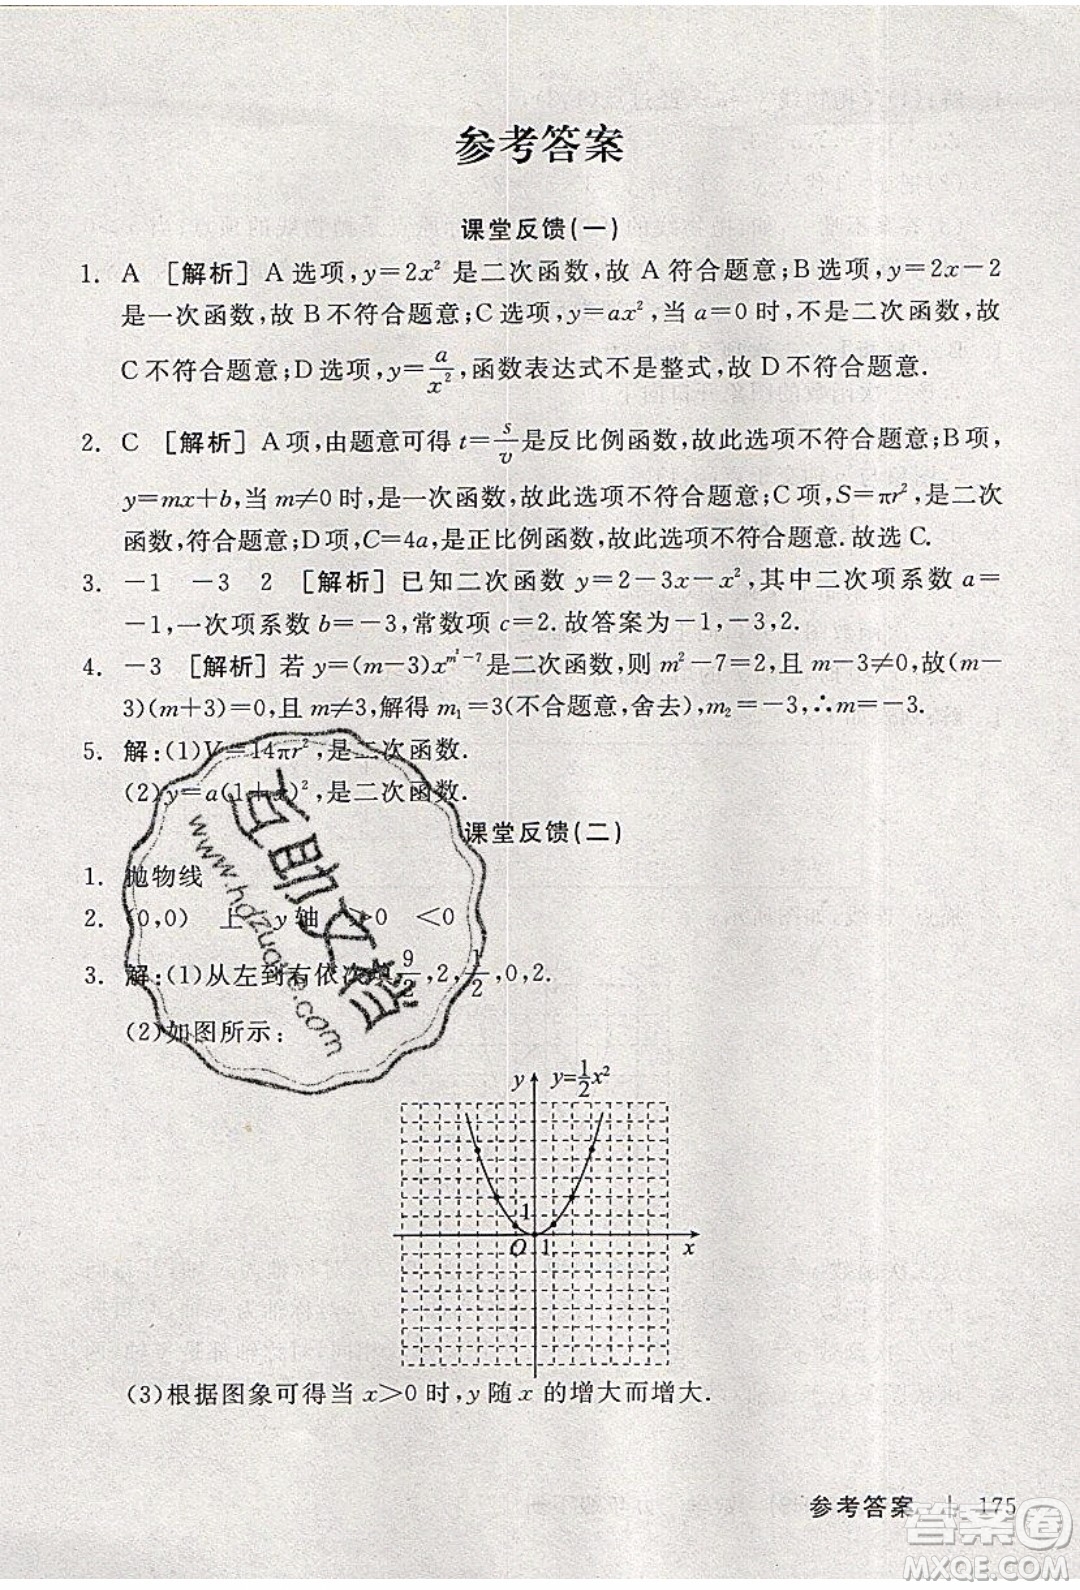 参考答案
课堂反馈(一)
1. A [解析] A 选项,y=2x² 是二次函数,故 A 符合题意;B 选项,y=2x-2
是一次函数,故 B 不符合题意;C 选项,y=ax²,当 a=0 时,不是二次函数,故
C 不符合题意;D 选项,y=a/x²,函数表达式不是整式,故 D 不符合题意.
2. C [解析] A 项,由题意可得 t=s/v 是反比例函数,故此选项不符合题意;B 项,
y=mx+b,当 m≠0 时,是一次函数,故此选项不符合题意;C 项,S=πr²,是二次
函数,符合题意;D 项,C=4a,是正比例函数,故此选项不符合题意.故选 C.
3. -1 -3 2 [解析] 已知二次函数 y=2-3x-x²,其中二次项系数 a=
-1,一次项系数 b=-3,常数项 c=2.故答案为-1,-3,2.
4. -3 [解析] 若 y=(m-3)x^(m²-7) 是二次函数,则 m²-7=2,且 m-3≠0,故(m-
3)(m+3)=0,且 m≠3,解得 m₁=3(不合题意,舍去),m₂=-3,∴m=-3.
5. 解:(1)V=14πr²,是二次函数.
(2)y=a(1+x)²,是二次函数.
课堂反馈(二)
1. 抛物线
2. (0,0) 上 y 轴 >0 <0
3. 解:(1)从左到右依次填 9/2,2,1/2,0,2.
(2)如图所示:
y y=1/2x²
1
O 1 x
(3)根据图象可得当 x>0 时,y 随 x 的增大而增大.
参考答案 | 175
互助文档
www.hdzuoye.com
答案圈
MXQE.COM